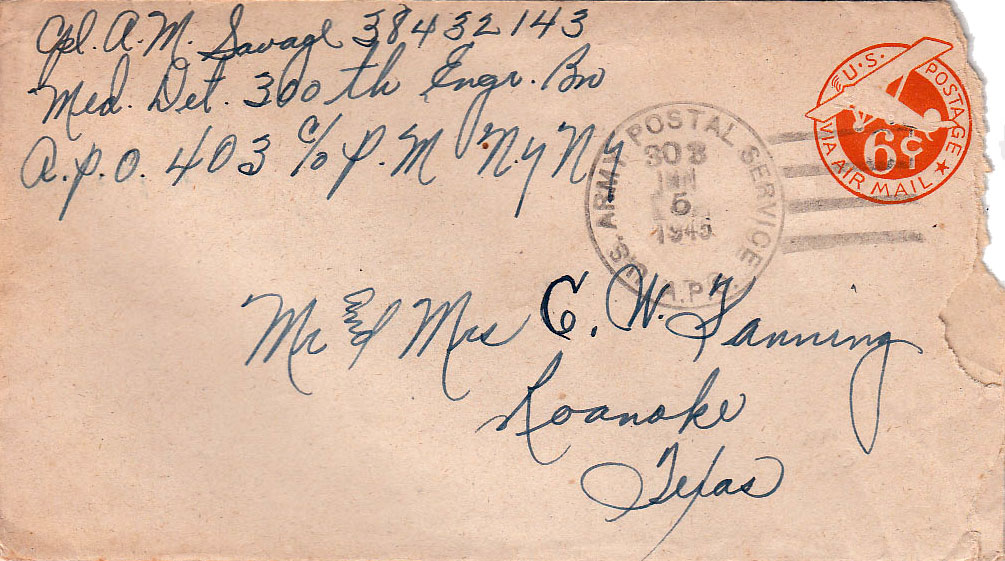 Cpl. A.M. Savage 38432143
Med. Det. 300th Engr. Bn
A.P.O. 403 c/o P.M N.Y N.Y
U.S. POSTAGE
VIA AIR MAIL
6¢
U.S. ARMY POSTAL SERVICE
A.P.O.
5
1945
Mr and Mrs C. W. Fanning
Roanoke
Texas